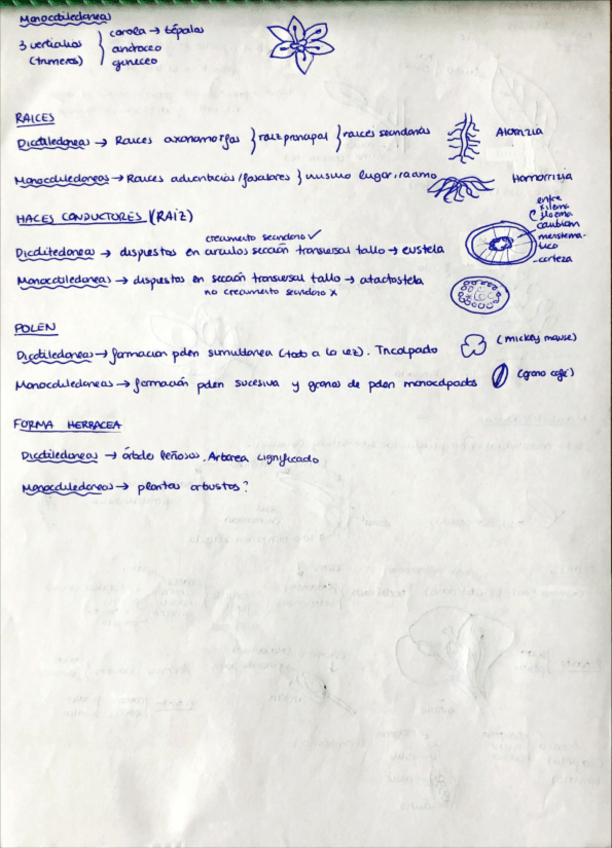 Monocotiledoneas
3 verticilios
(trímeros)
corola → tépalos
androceo
gineceo
RAICES
Dicotiledoneas → Raíces axonomorfas } raiz principal } raices secundarias
Alorrizia
Monocotiledoneas → Raíces adventicias / fasciculares } mismo lugar,
Homorrizia
HACES CONDUCTORES (RAÍZ)
crecimiento secundario ✓
Dicotiledoneas → dispuestos en circulos sección transversal tallo → eustela
entre
xilema
floema
cambium
meristema-
tico
corteza
Monocotiledoneas → dispuestos en sección transversal tallo → atactostela
no crecimiento secundario x
POLEN
Dicotiledoneas → formacion polen simultanea (todo a la vez). Tricolpado
(mickey mouse)
Monocotiledoneas → formación polen sucesiva y granos de polen monocolpados
(grano café)
FORMA HERBACEA
Dicotiledoneas → leñosos. Arborea lignificado
Monocotiledoneas → plantas arbustos?